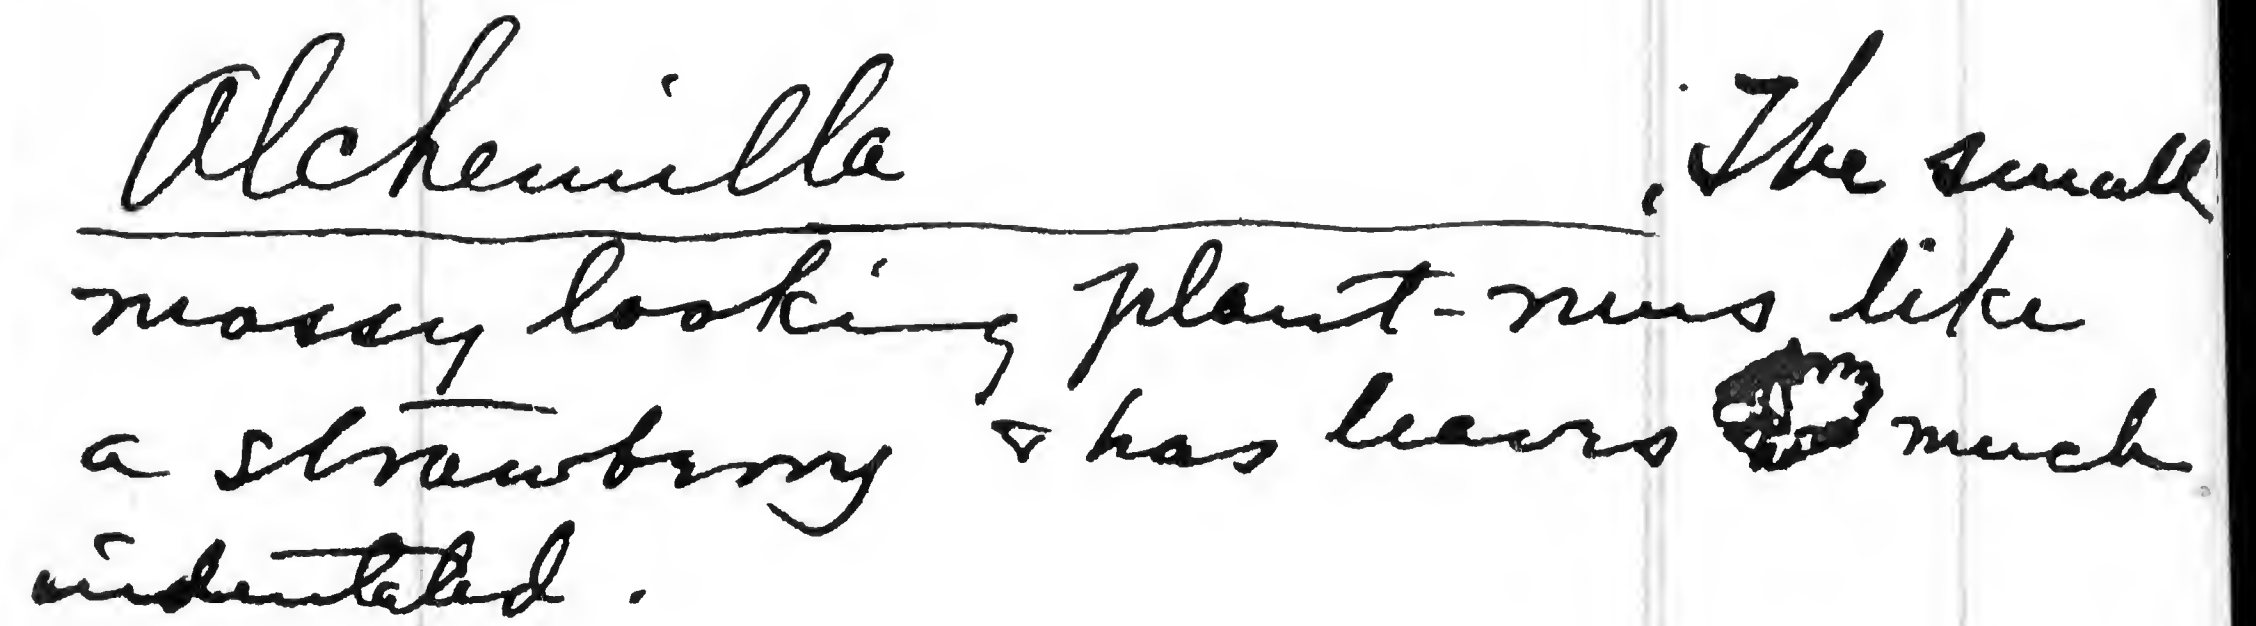 Alchemilla . The small
mossy looking plant - runs like
a strawberry & has leaves much
indentated.